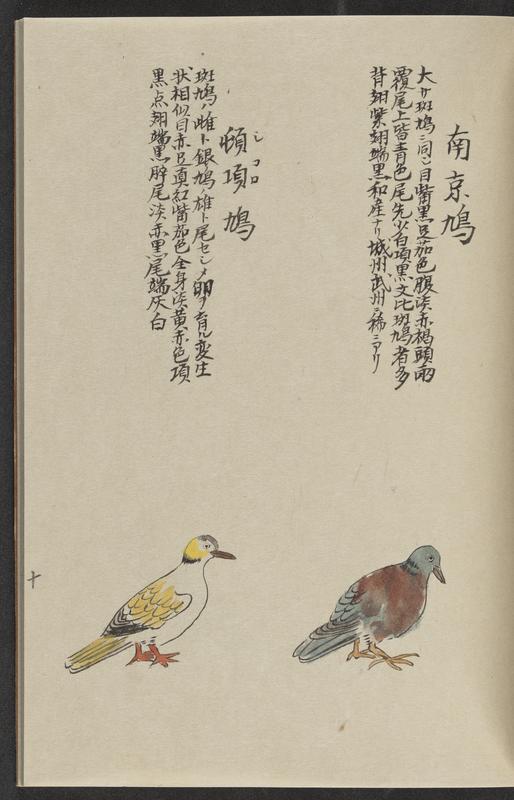 南京鳩
大サ斑鳩ニ同シ目觜黒足茄色腹淡赤褐頭両
覆尾上皆青色尾先少白項黒文比斑鳩者多
背翅紫翅端黒和産ナリ城州武州ニ稀ニアリ
頓項鳩
シコロ
斑鳩ノ雌ト銀鳩ノ雄ト尾セシメ卵ヲ育ル変生
状相似目赤足真紅觜茄色全身淡黄赤色項
黒点翅端黒脺尾淡赤黒尾端灰白
十